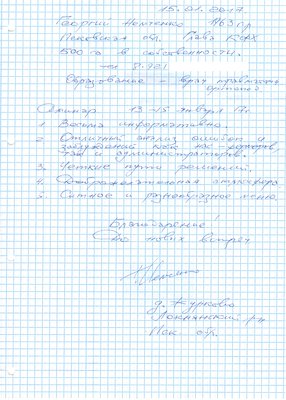 15.01.2017
Георгий 1963 г.р
Псковская обл. Глава КФХ
500 га в собственности.
8-921
Образование – врач травматолог
ортопед
Семинар 13-15 января 17г.
1. Весьма информативно.
2. Отличный анализ ошибок и
заблуждений как нас
так и администраторов.
3. Четкие пути решений.
4. Доброжелательная атмосфера
5. Сытное и разнообразное меню
Благодарение!
До новых встреч
д. Курково
Локнянский р-н
Пск. обл.